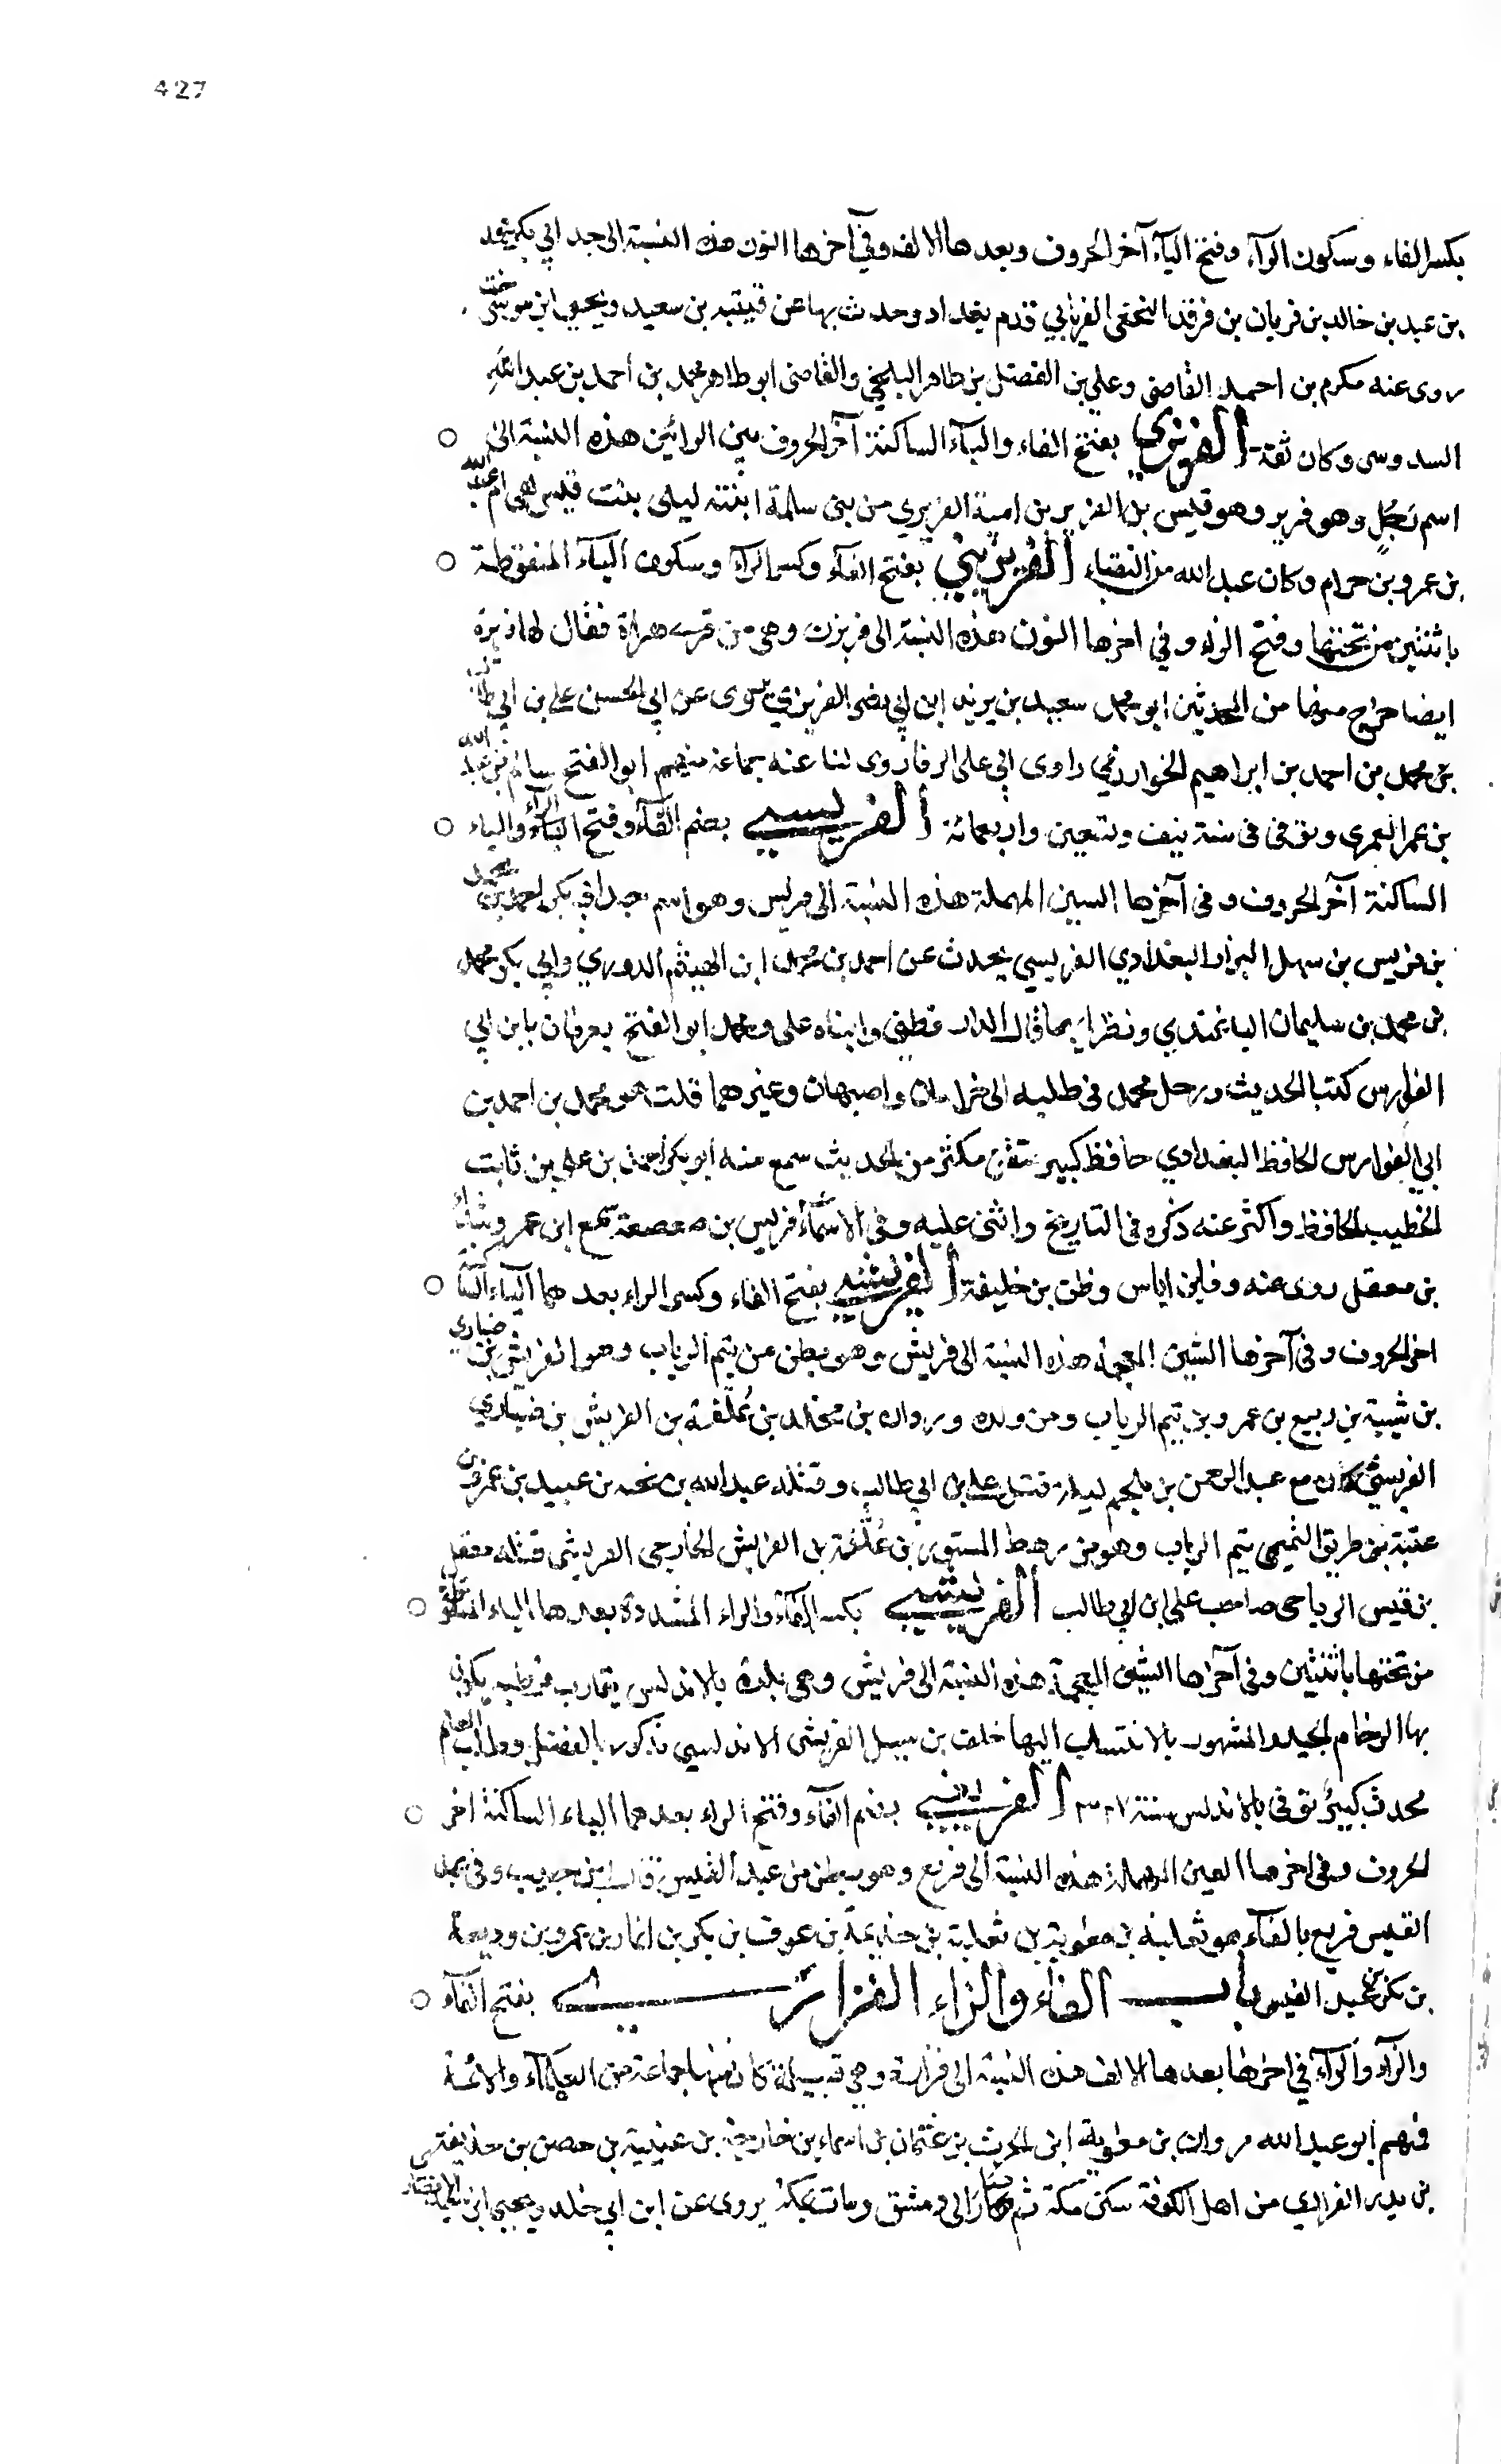 427
بكسر الفاء وسكون الراء وفتح الياء آخر الحروف وبعدها الالف وفي آخرها النون هذه النسبة الى جد ابي بكر محمد
بن عبد بن خالد بن فريان بن فرقد النخعي الفريابي قدم بغداد وحدث بها عن قتيبة بن سعيد ويحيى ابن موسى خت
روى عنه مكرم بن احمد القاضي وعلي بن الفضل بن طاهر البلخي والقاضي ابو طاهر محمد بن احمد بن عبد الله
السدوسي وكان ثقة الفريري بفتح الفاء والياء الساكنة آخر الحروف بين الرائين هذه النسبة الى
اسم رجل وهو فرير وهو قيس بن الفرير بن امية الفريري من بني سلمة ابنته ليلى بنت قيس هي ام عبد الله
بن عمرو بن حرام وكان عبد الله من النقباء الفريزني بفتح الفاء وكسر الراء وسكون الياء المنقوطة
باثنتين من تحتها وفتح الزاء وفي اخرها النون هذه النسبة الى فريزن وهي من قرى هراة فقال لها فريزه
ايضا خرج منها من المحدثين ابو محمد سعيد بن يزيد ابن ابي نصر الفريزني يروى عن ابي الحسن علي بن ابي طالب
بن محمد بن احمد بن ابراهيم الخوارزمي راوى ابي على الرفا روى لنا عنه جماعة منهم ابو الفتح سالم بن عبد الله
بن عمر العمري وتوفي في سنة نيف وتسعين واربعمائة الفريسي بضم الفاء وفتح الراء والياء
الساكنة آخر الحروف وفي آخرها السين المهملة هذه النسبة الى فريس وهو اسم جد ابي بكر احمد بن محمد
بن فريس بن سهل البزاز البغدادي الفريسي يحدث عن احمد بن محمد ابن الهيثم الدوري وابي بكر محمد
بن محمد بن سليمان الباغندي ونظرائهما قال الدارقطني وابناه على ومحمد ابو الفتح يعرفان بابن ابي
الفوارس كتبا الحديث ورحل محمد في طلبه الى خراسان واصبهان وغيرهما قلت هو محمد بن احمد بن
ابي الفوارس الحافظ البغدادي حافظ كبير متقن مكثر من الحديث سمع منه ابو بكر احمد بن علي بن ثابت
الخطيب الحافظ واكثر عنه ذكره في التاريخ واثنى عليه وفي الاسماء فريس بن صعصعة سمع ابن عمر
بن معقل روى عنه وفاء بن اياس وفطر بن خليفة الفريشي بفتح الفاء وكسر الراء بعدهما الياء الساكنة
اخر الحروف وفي آخرها الشين المعجمة هذه النسبة الى فريش وهو بطن من تيم الرباب وهو الفريش بن ضباري
بن شيبة بن ربيع بن عمرو بن تيم الرباب ومن ولده وردان بن مخالد بن علفة بن الفريش بن ضباري
الفريشي كان مع عبد الرحمن بن ملجم ليلة قتل علي بن ابي طالب وقتله عبد الله بن نجبة بن عبيد بن عمرو بن
عتبة بن طريق التميمي تيم الرباب وهو من رهط المستورد بن علفة بن الفريش الخارجي الفريشي قتله معقل
بن قيس الرياحي صاحب على ابن ابي طالب الفريشي بكسر الفاء والراء المشددة بعدهما الياء المنقوطة
من تحتها باثنتين وفي آخرها الشين المعجمة هذه النسبة الى فريش وهي بلدة بالاندلس تقارب قرطبة يكون
بها الرخام الجيد والمشهور بالانتساب اليها خلف بن بسيل الفريشي الاندلسي مذكور بالفضل وطلب العلم
محدث كبير توفي بالاندلس سنة ٣٢٧ الفريعي بضم الفاء وفتح الراء بعدهما الياء الساكنة اخر
الحروف وفي اخرها العين المهملة هذه النسبة الى فريع وهو بطن من عبد القيس قال ابن حبيب وفي عبد
القيس فريع بالفاء هو ثعلبة بن معوية بن ثعلبة بن جذيمة بن عوف بن بكر بن انمار بن عمرو بن وديعة
بن لكيز بن عبد القيس باب الفاء والزاء الفزاري بفتح الفاء
والزاء والراء في اخرها بعدها الالف هذه النسبة الى فزارة وهي قبيلة كان منها جماعة من العلماء والائمة
فمنهم ابو عبد الله مروان بن معاوية ابن الحرث بن عثمان بن اسماء بن خارجة بن عيينة بن حصن بن حذيفة
بن بدر الفزاري من اهل الكوفة سكن مكة ثم صار الى دمشق ومات بمكة يروى عن ابن ابي خلد ويحيى ابن سعيد الانصاري